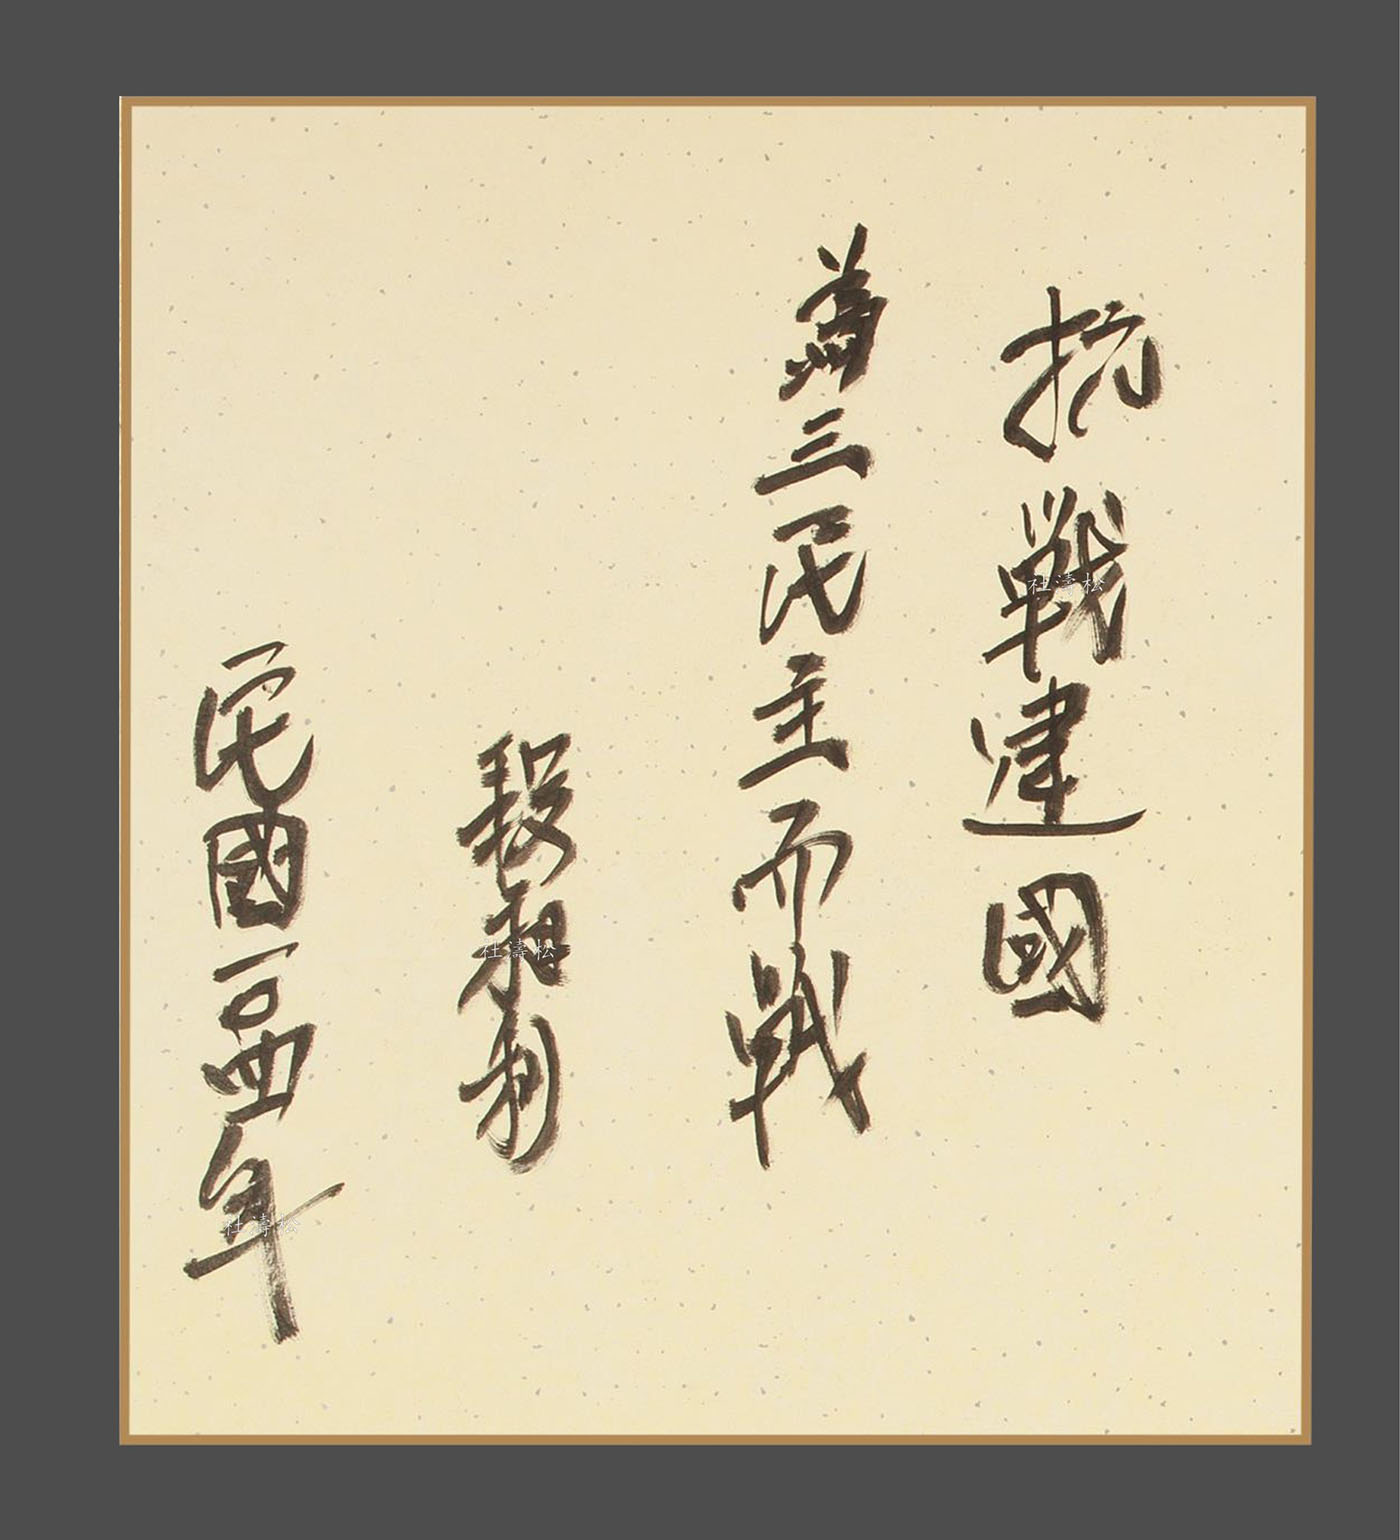 抗戰建國
為三民主而戰
民國一〇四年
杜濤松
杜濤松
杜濤松